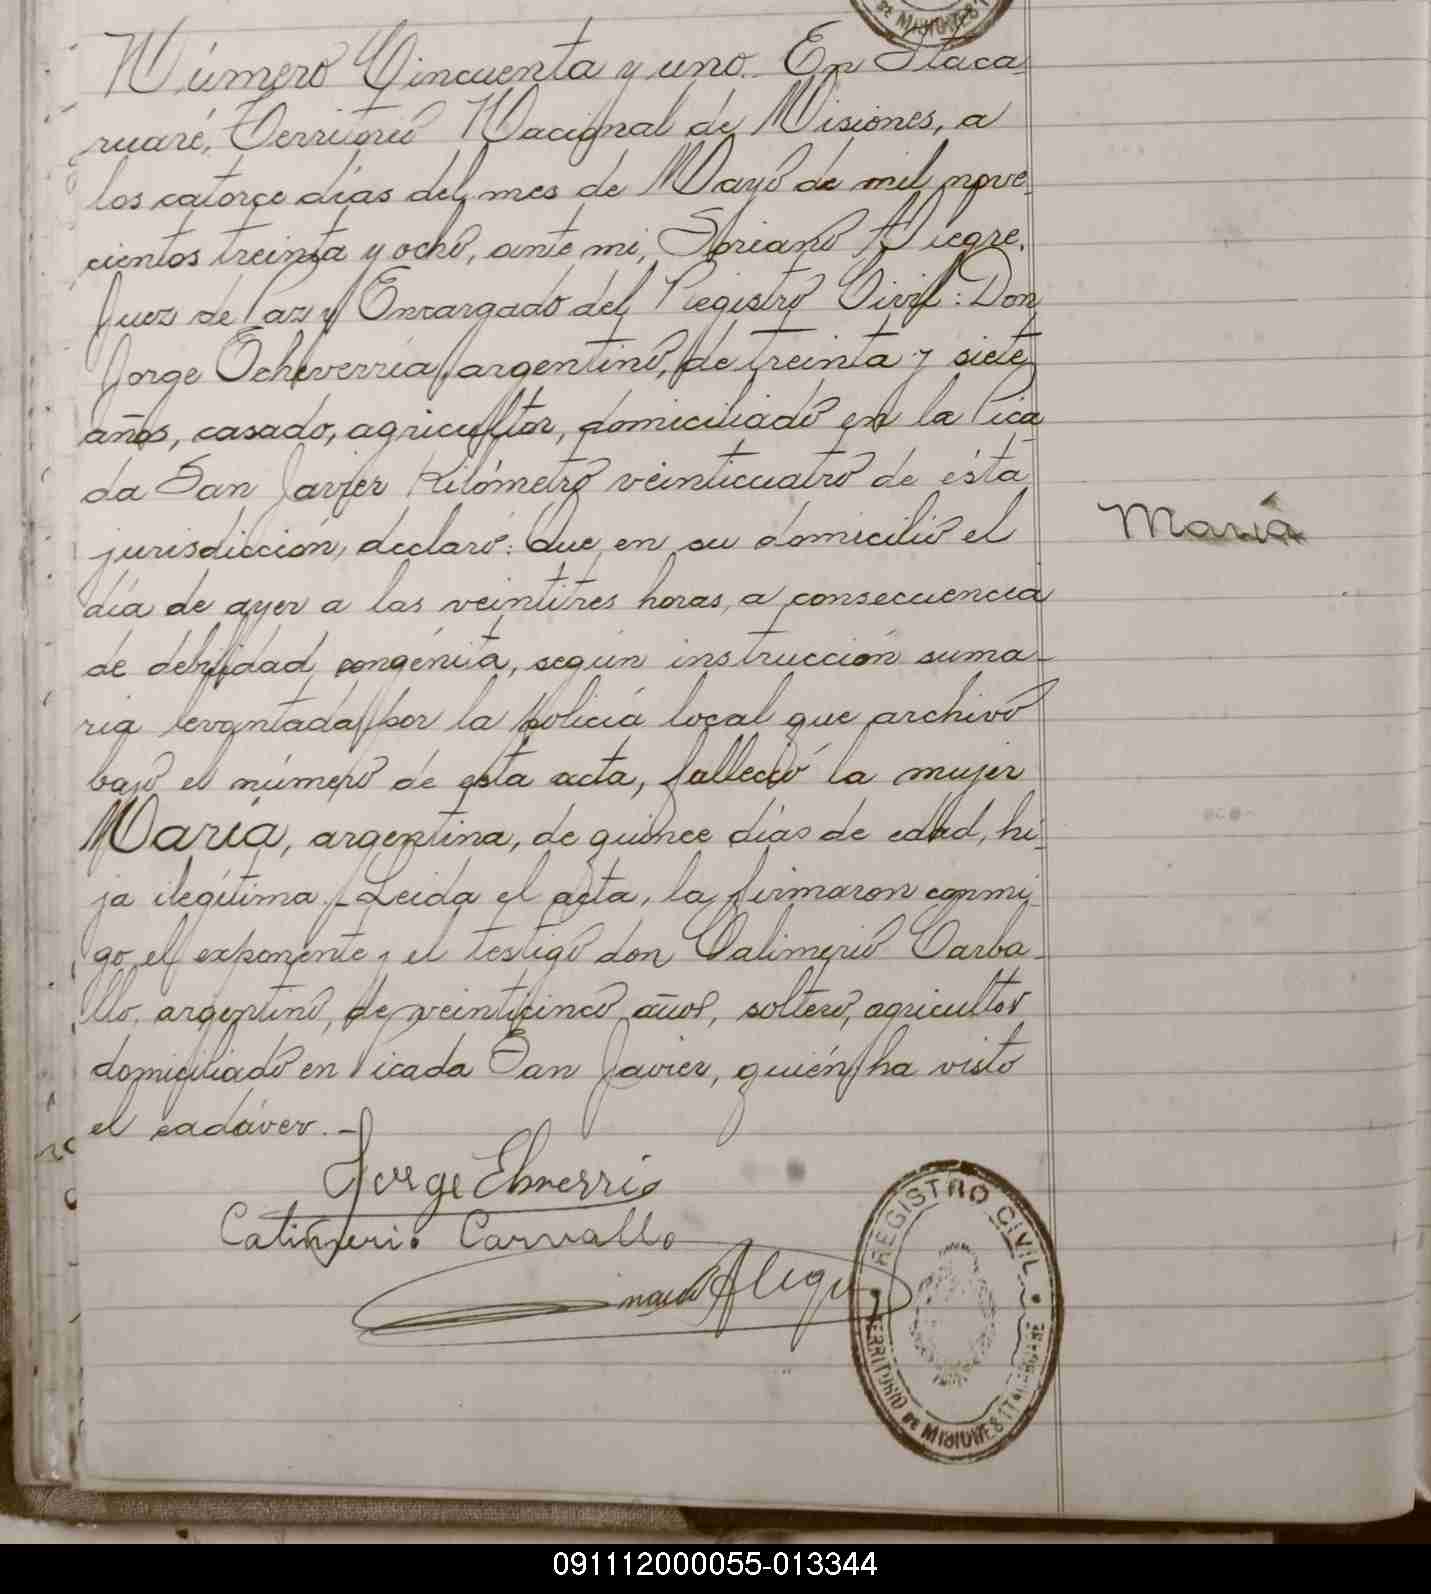 Número Cincuenta y uno. En Itaca-
ruaré, Territorio Nacional de Misiones, a
los catorce días del mes de Mayo de mil nove-
cientos treinta y ocho, ante mi, Soriano Alegre,
Juez de Paz y Encargado del Registro Civil: Don
Jorge Echeverría, argentino, de treinta y siete
años, casado, agricultor, domiciliado en la Pica-
da San Javier Kilómetro veinticuatro de ésta
jurisdicción, declaró: Que en su domicilio el
María
día de ayer a las veintitres horas, a consecuencia
de debilidad congénita, según instrucción suma-
ria levantada por la policía local que archivo
bajo el número de esta acta, falleció la mujer
María, argentina, de quince días de edad, hi-
ja ilegítima. Leida el acta, la firmaron conmi-
go, el exponente y el testigo don Calimerio Carba-
llo, argentino, de veinticinco años, soltero, agricultor
domiciliado en Picada San Javier, quién ha visto
el cadáver. -
Jorge
Calimerio Carvallo
REGISTRO CIVIL
TERRITORIO DE MISIONES
DE MISIONES
091112000055-013344